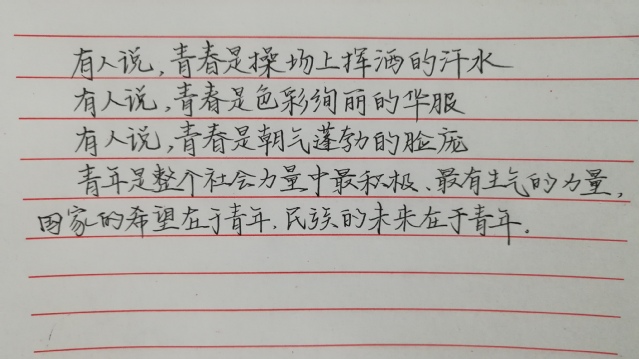 有人说,青春是操场上挥洒的汗水
有人说,青春是色彩绚丽的华服
有人说,青春是朝气蓬勃的脸庞
青年是整个社会力量中最积极、最有生气的力量,
国家的希望在于青年,民族的未来在于青年.